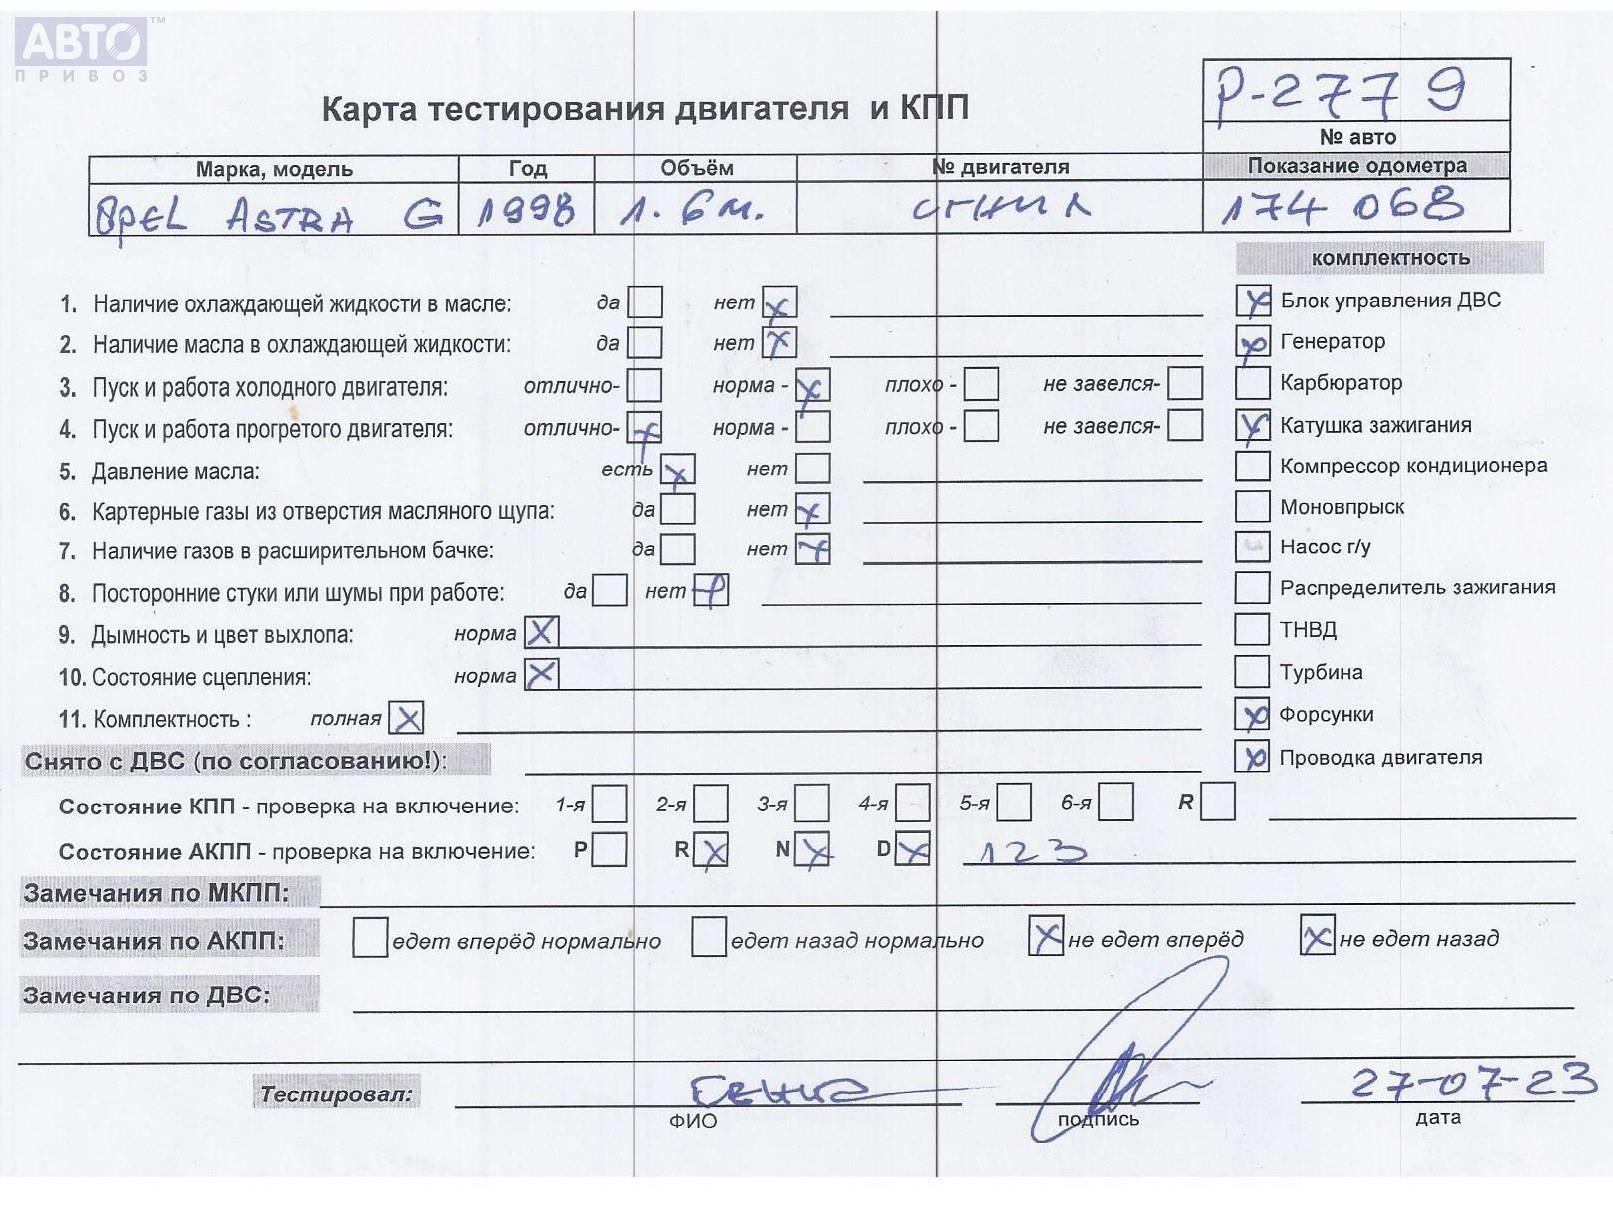 АВТО™
ПРИВОЗ
Р-2779
Карта тестирования двигателя и КПП
№ авто
Марка, модель Год Объём № двигателя Показание одометра
OPEL ASTRA G 1998 1.6 м. 174 068
комплектность
1. Наличие охлаждающей жидкости в масле: да нет x x Блок управления ДВС
2. Наличие масла в охлаждающей жидкости: да нет x x Генератор
3. Пуск и работа холодного двигателя: отлично- норма - x плохо - не завелся- Карбюратор
4. Пуск и работа прогретого двигателя: отлично- x норма - плохо - не завелся- x Катушка зажигания
5. Давление масла: есть x нет Компрессор кондиционера
6. Картерные газы из отверстия масляного щупа: да нет x Моновпрыск
7. Наличие газов в расширительном бачке: да нет x Насос г/у
8. Посторонние стуки или шумы при работе: да нет x Распределитель зажигания
9. Дымность и цвет выхлопа: норма x ТНВД
10. Состояние сцепления: норма x Турбина
11. Комплектность : полная x x Форсунки
Снято с ДВС (по согласованию!): x Проводка двигателя
Состояние КПП - проверка на включение: 1-я 2-я 3-я 4-я 5-я 6-я R
Состояние АКПП - проверка на включение: P R x N x D x 123
Замечания по МКПП:
Замечания по АКПП: едет вперёд нормально едет назад нормально x не едет вперёд x не едет назад
Замечания по ДВС:
Тестировал: 27-07-23
ФИО подпись дата